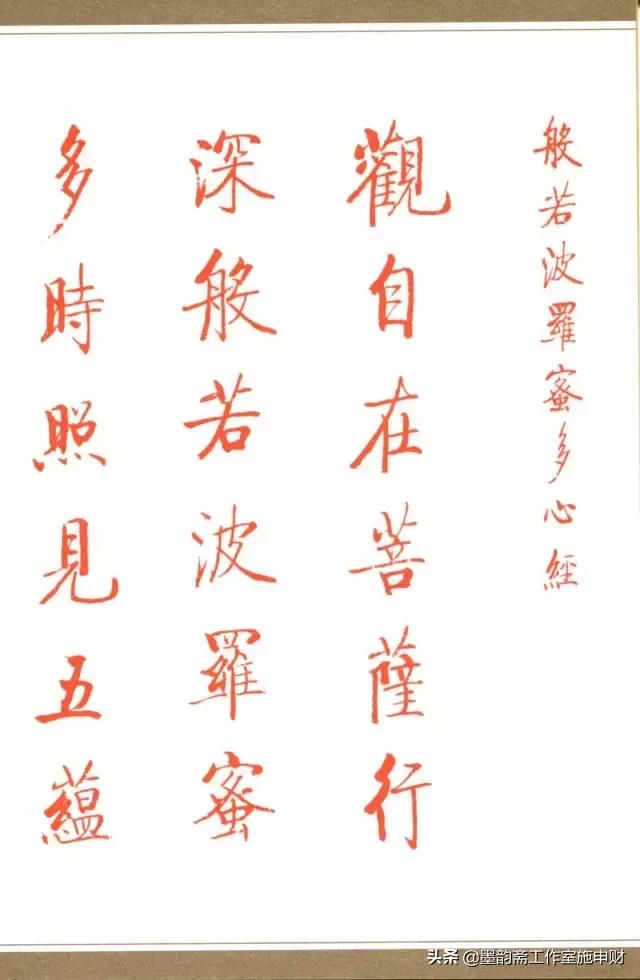 般若波羅蜜多心經
觀自在菩薩行
深般若波羅蜜
多時照見五蘊
头条 @墨韵斋工作室施申财